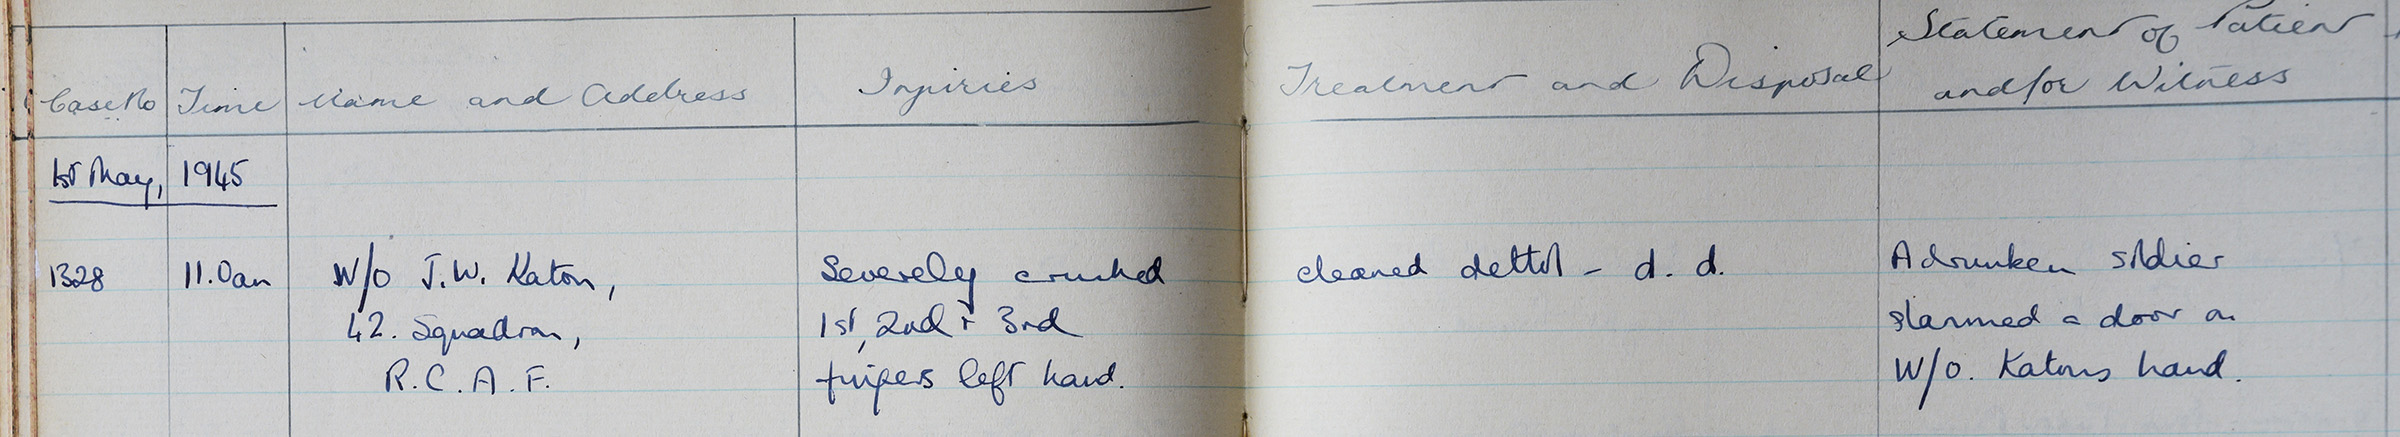 Case No Time Name and Address Injuries Treatment and Disposal Statement of Patient
and/or Witness
1st May, 1945
1328 11.0am W/o J.W. Katon, Severely crushed cleaned dettol - d. d. A drunken soldier
42. Squadron, 1st, 2nd + 3rd slammed a door on
R.C.A.F. fingers left hand. W/o. Katons hand.